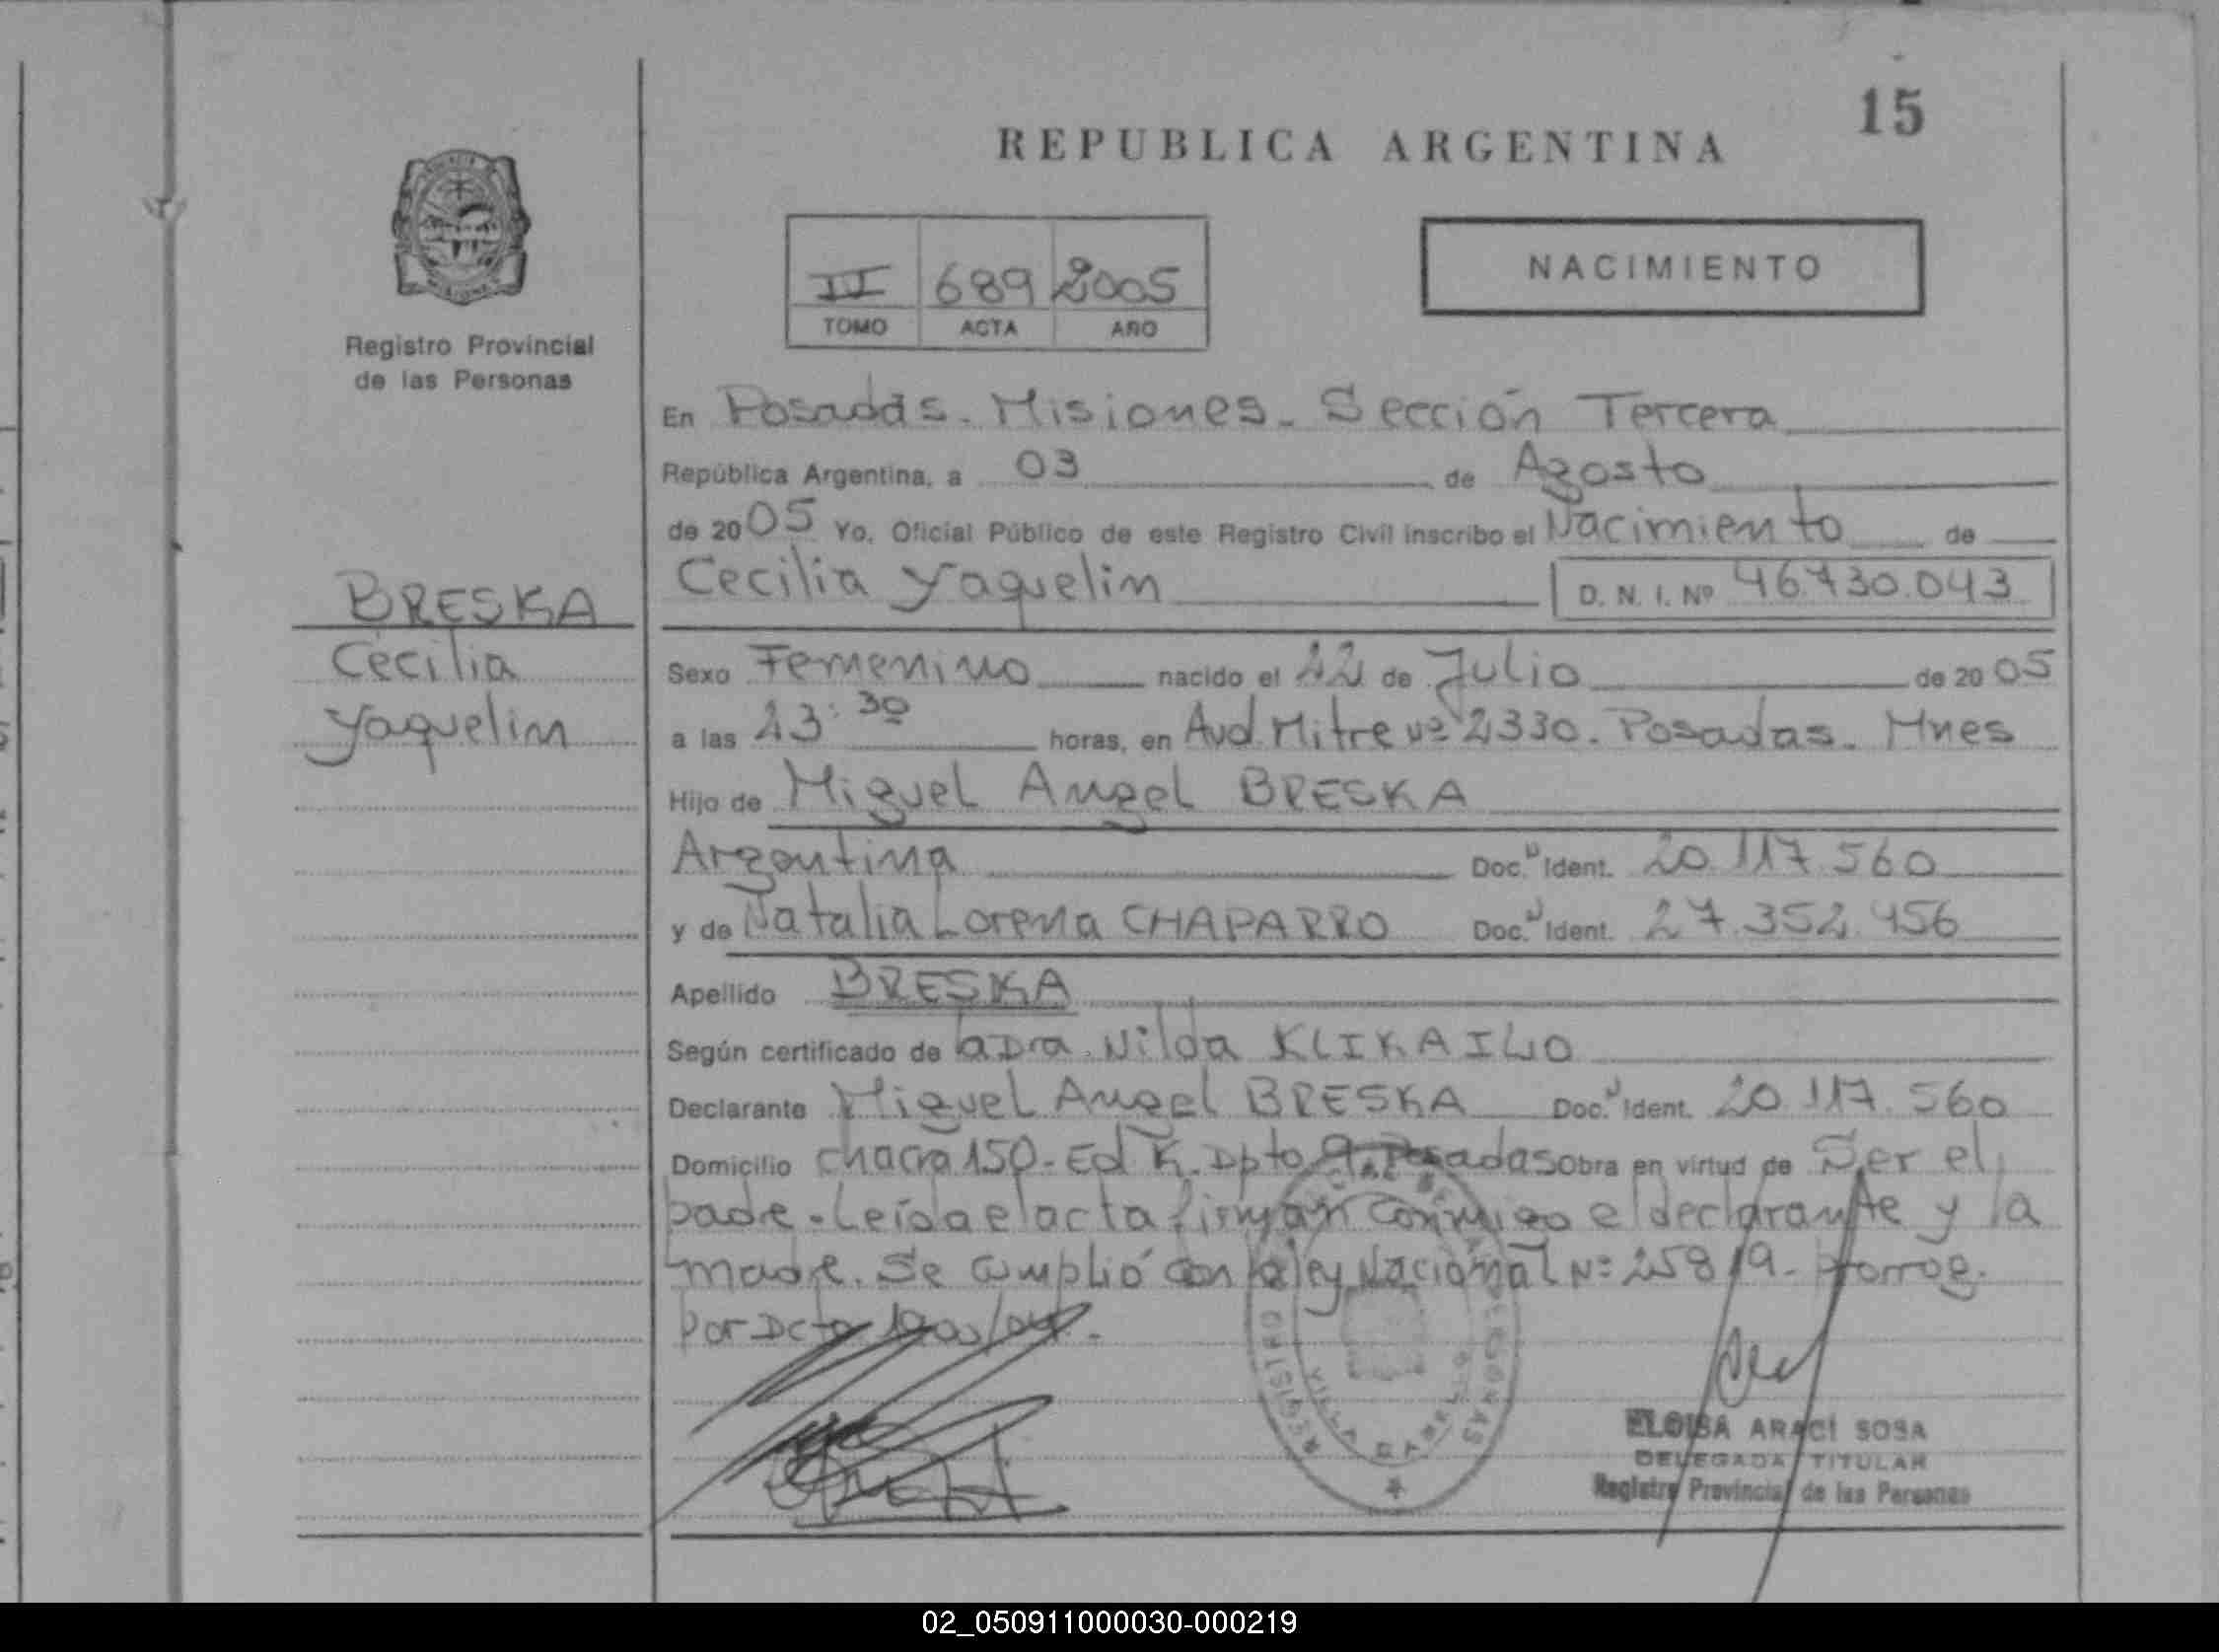 15
REPUBLICA ARGENTINA
II 689 2005
TOMO ACTA AÑO
NACIMIENTO
Registro Provincial
de las Personas
BRESKA
Cecilia
Yaquelin
En Posadas. Misiones. Sección Tercera
República Argentina, a 03 de Agosto
de 2005 Yo, Oficial Público de este Registro Civil inscribo el Nacimiento de
Cecilia Yaquelin D. N. I. Nº 46.730.043
Sexo Femenino nacido el 22 de Julio de 2005
a las 23:30 horas, en Avd. Mitre nº 2330. Posadas. Mnes
Hijo de Miguel Angel BRESKA
Argentina Doc. Ident. 20.117.560
y de Natalia Lorena CHAPARRO Doc. Ident. 27.352.456
Apellido BRESKA
Según certificado de la Dra. Nilda
Declarante Miguel Angel BRESKA Doc. Ident. 20.117.560
Domicilio chacra 150 - Ed K. Dpto 9. Posadas Obra en virtud de Ser el
padre. Leída el acta firman conmigo el declarante y la
madre. Se cumplió con la ley Nacional Nº 25819. prorrog.
por Dcto
REGISTRO PERSONAS
VILLA CABELLO
ELOISA ARACI SOSA
DELEGADA TITULAR
Registro Provincial de las Personas
02_050911000030-000219